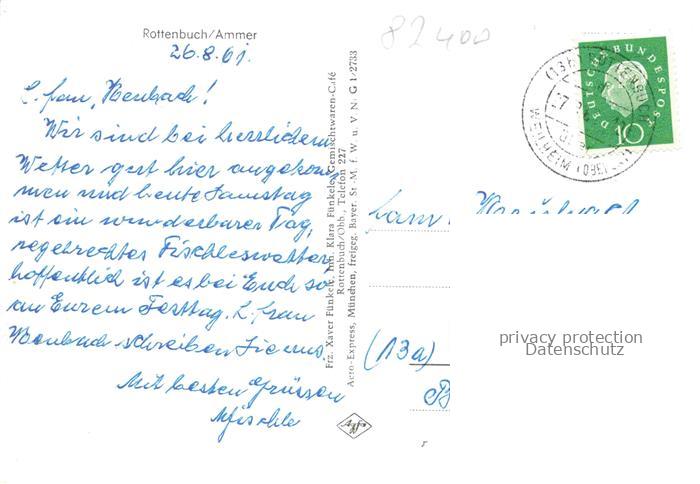 Rottenbuch/Ammer
82400
26.8.61.
L. frau, Neubach!
Wir sind bei herrlichem
Wetter gut hier angekom-
men und heute Samstag
ist ein wunderbarer Tag,
regelrechtes Fischleswetter
hoffentlich ist es bei Euch so
an Eurem Festtag. L. frau
schreiben Sie uns.
Mit besten Grüssen
Frz. Xaver Fünkele, Inh. Klara Fünkele, Gemischtwaren-Café
Rottenbuch/Obb., Telefon 227
Aero-Express, München, freigeg. Bayer. St.-M. f. W. u. V. N: G 1/2733
Agfa
(13a)
B
DEUTSCHE BUNDESPOST
10
(13b) ROTTENBUCH
WEILHEIM (OBERBAY)
privacy protection
Datenschutz